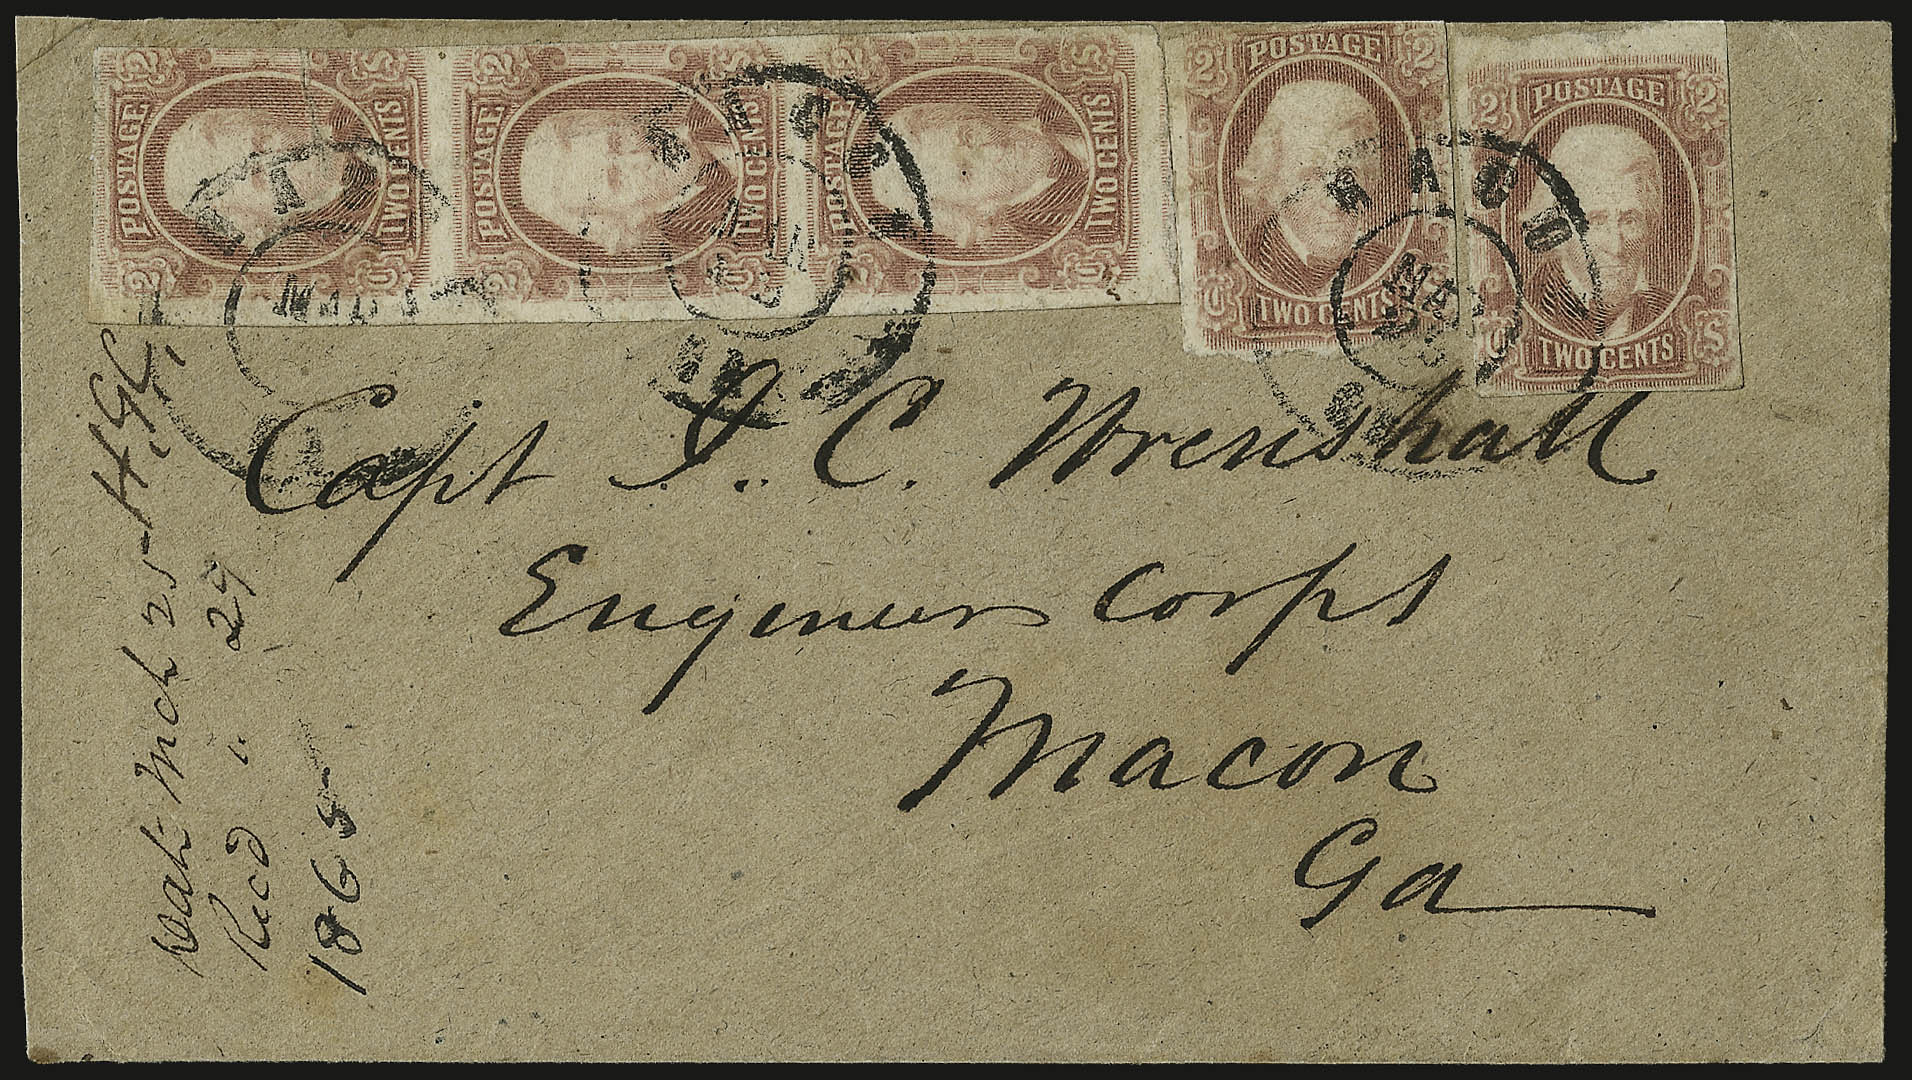 2 POSTAGE 2 TWO CENTS C S
2 POSTAGE 2 TWO CENTS C S
2 POSTAGE 2 TWO CENTS C S
2 POSTAGE 2
C TWO CENTS
2 POSTAGE 2
C TWO CENTS S
MACO
MACO
MAR
Capt J. C. Wrenshall
Engineers Corps
Macon
Ga
Mch 25
Recd " 29
1865